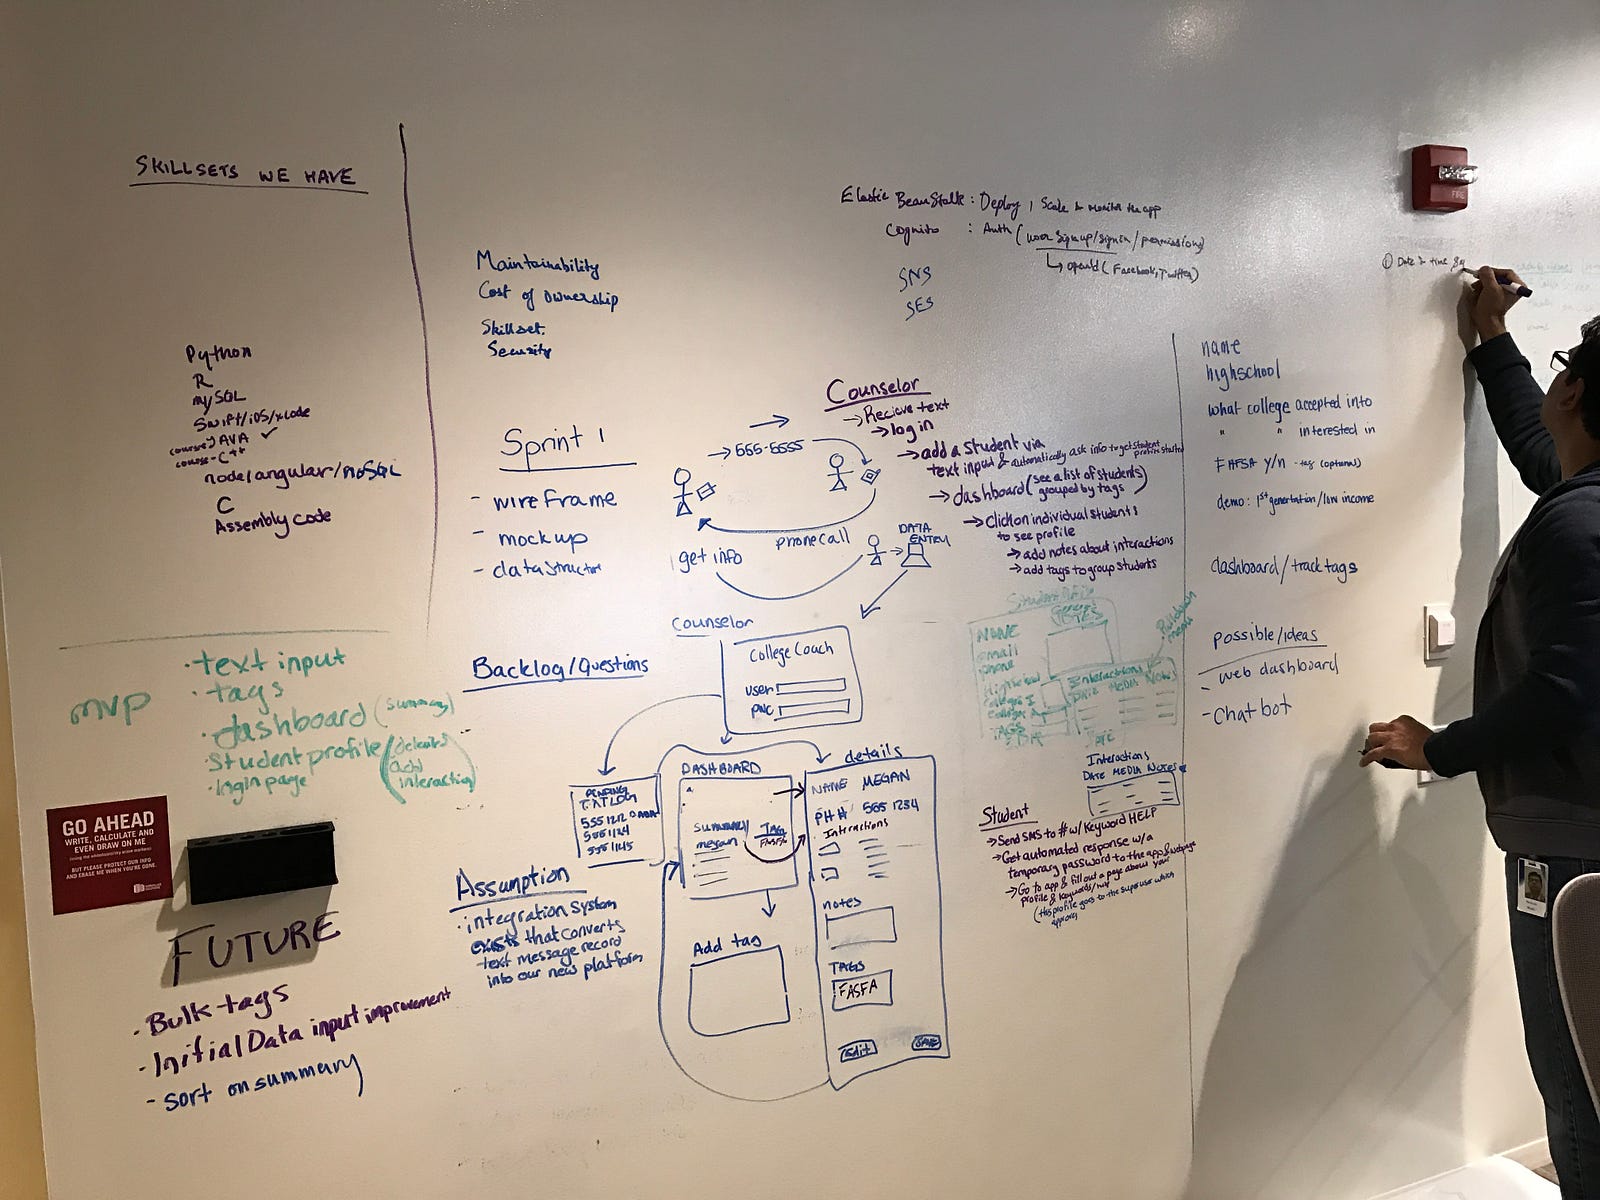 SKILLSETS WE HAVE
Python
R
mySQL
Swift/iOS/xcode
course JAVA ✓
course - C++
node/angular/noSQL
C
Assembly code
mvp
· text input
· tags
· dashboard (summary)
Student profile (details
add
interaction)
· login page
GO AHEAD
WRITE, CALCULATE AND
EVEN DRAW ON ME
BUT PLEASE PROTECT OUR INFO
AND ERASE ME WHEN YOU'RE DONE.
FUTURE
· Bulk tags
· Initial Data input improvement
- sort on summary
Maintainability
Cost of ownership
Skillset.
Security
Sprint 1
- wireframe
- mock up
- data structur
Backlog/Questions
Assumption
· integration system
exists that converts
text message record
into our new platform
Elastic BeanStalk : Deploy, Scale & monitor the app
Cognito : Auth (user signup/signin/permissions)
↳ openId (Facebook, Twitter)
SNS
SES
Counselor
→ Recieve text
→ log in
→ add a student via
text input & automatically ask info to get student profile started
→ dashboard (see a list of students grouped by tags)
→ Click on individual students
to see profile
→ add notes about interactions
→ add tags to group students
→ 555-5555
phone call
get info
DATA
ENTRY
Counselor
College Coach
user
pwc
PENDING
TXT LOG
555 1212
555 1124
555 1145
DASHBOARD
summary
megan
TAG
FASFA
Add tag
details
NAME MEGAN
PH # 555 1234
Interactions
notes
TAGS
FASFA
Edit
SAVE
Student Profile
NAME
email
phone
Highschool
TAGS
Interactions
DATE MEDIA NOTES
Pulldown
menu
Interactions
DATE MEDIA NOTES
Student
→ Send SMS to # w/ Keyword HELP
→ Get automated response w/ a
temporary password to the app & webpage
→ Go to app & fill out a page about your
profile & keywords/
(this profile goes to the super user which
approves
name
highschool
what college accepted into
" " interested in
FAFSA Y/n - tag (optional)
demo: 1st genertation/low income
dashboard/track tags
possible/ideas
- web dashboard
- Chat bot
① Date & time
FIRE